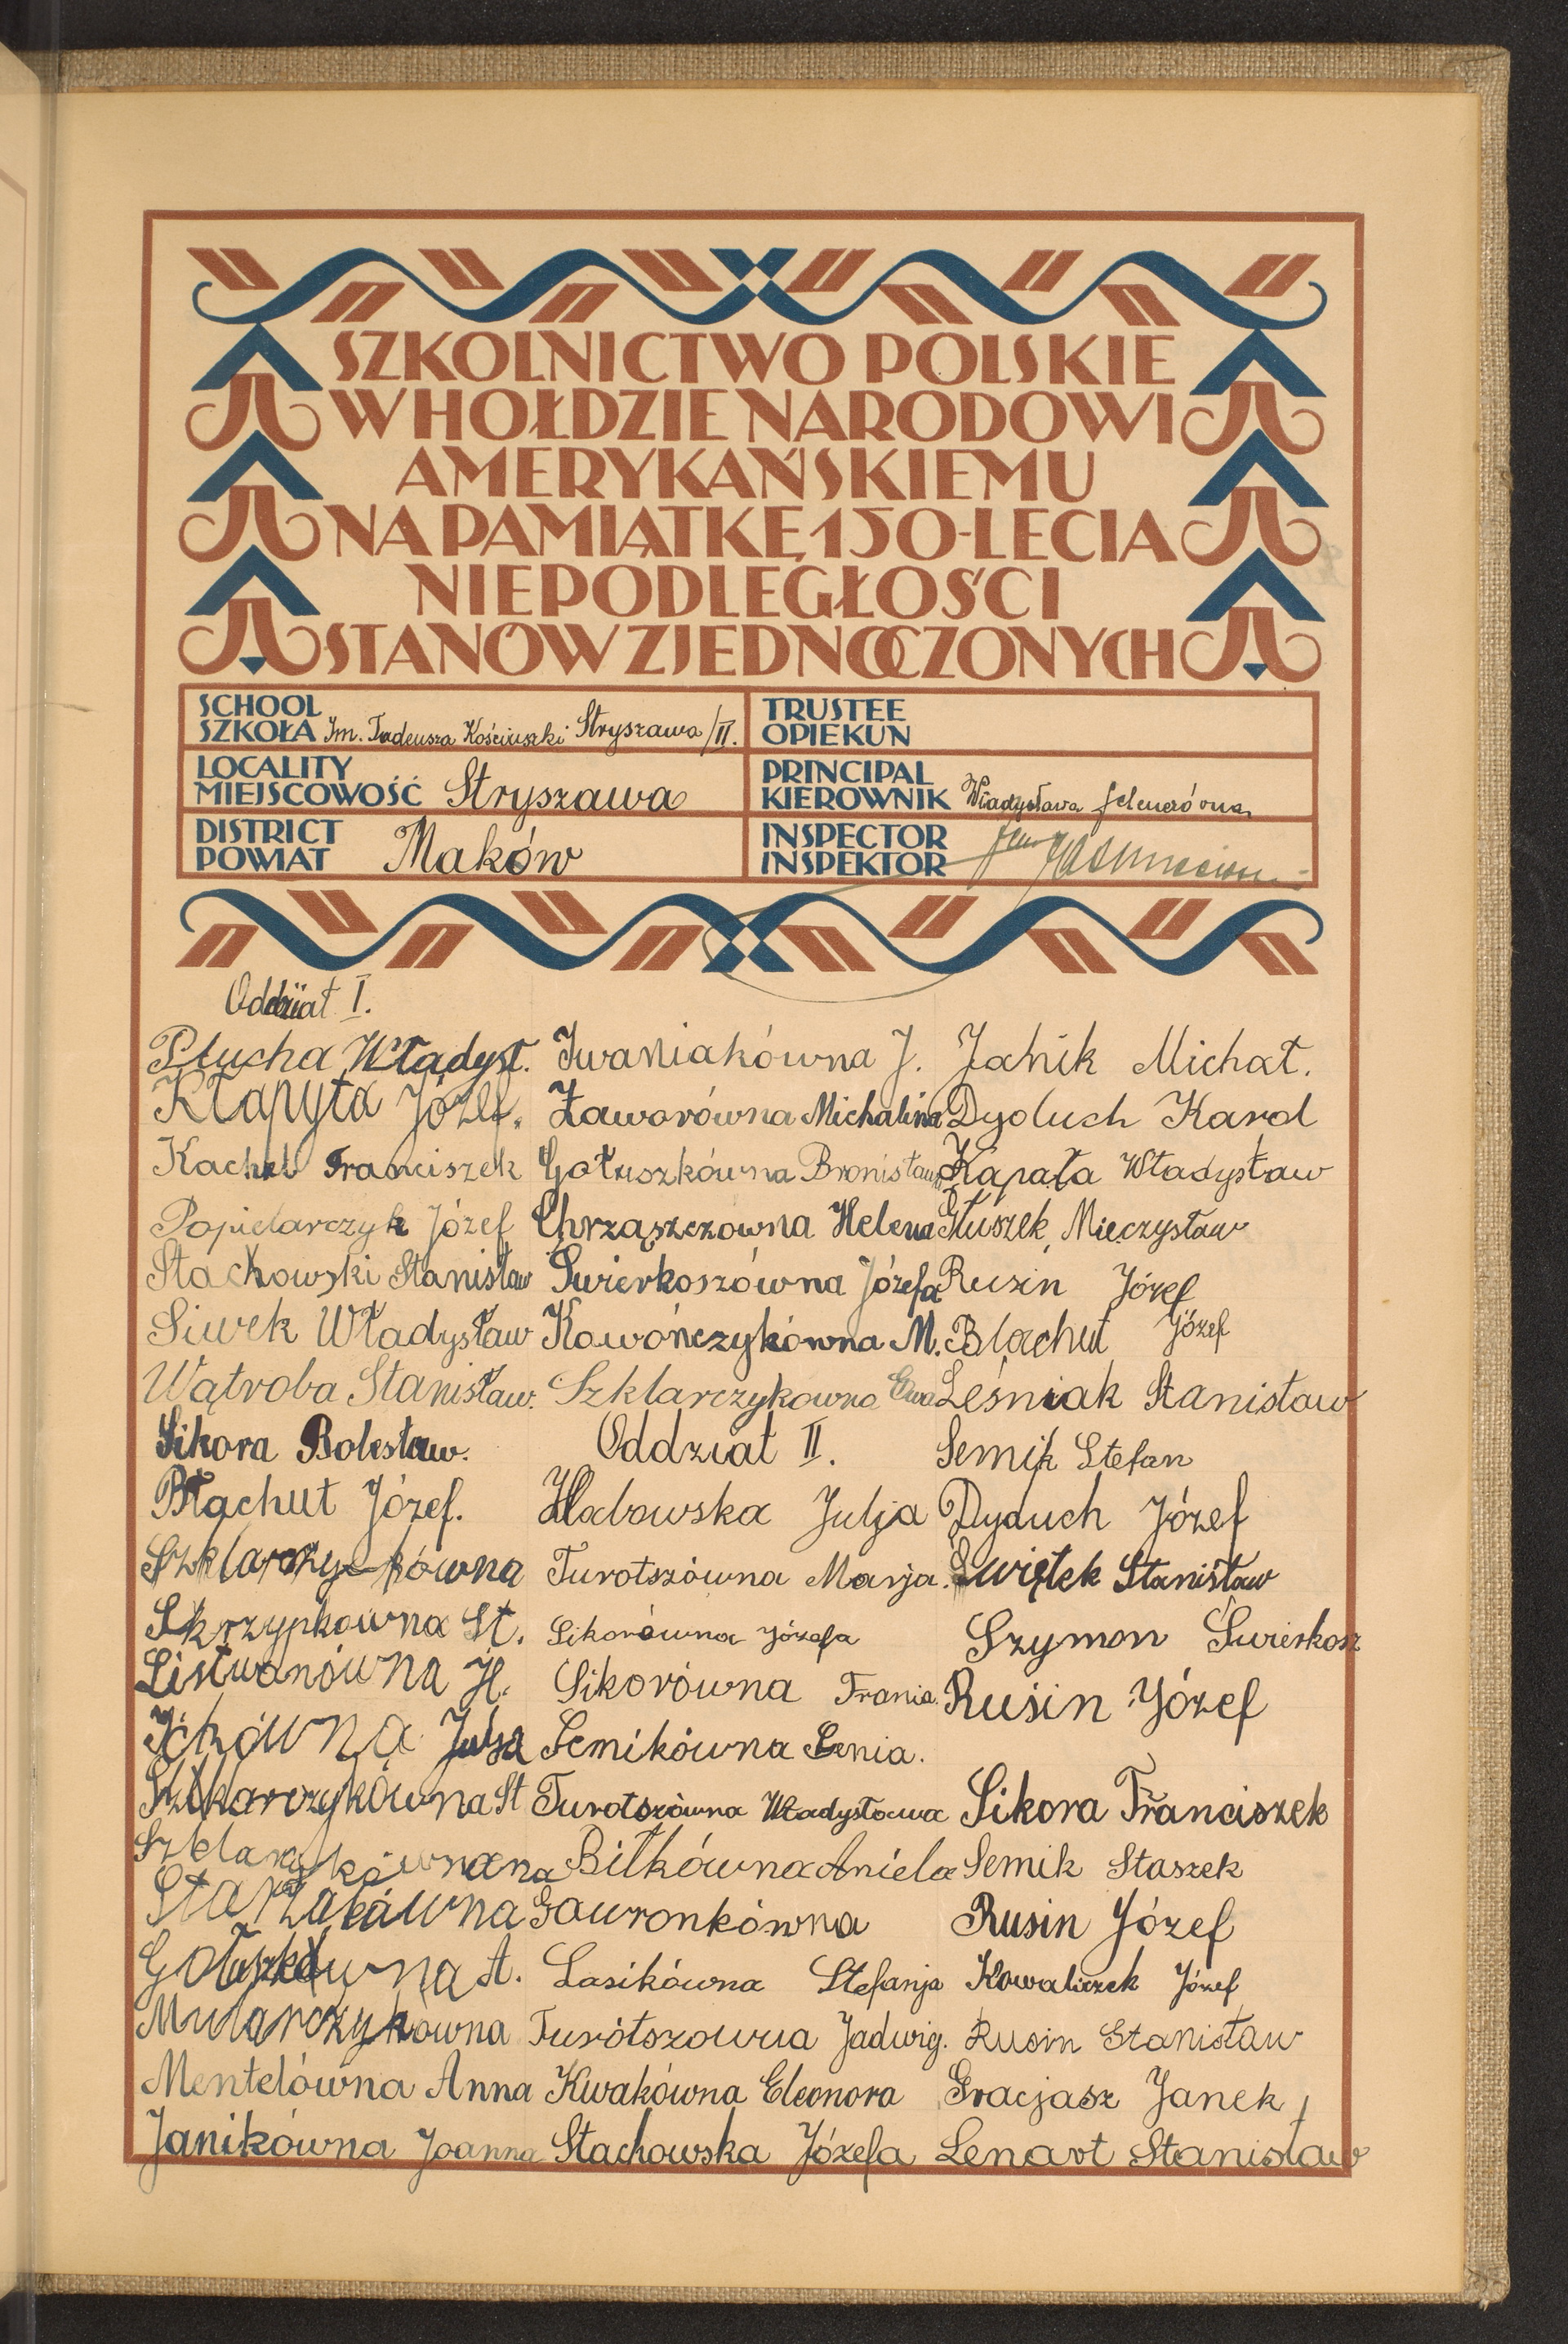 SZKOLNICTWO POLSKIE
W HOŁDZIE NARODOWI
AMERYKAŃSKIEMU
NA PAMIĄTKĘ 150-LECIA
NIEPODLEGŁOŚCI
STANÓW ZJEDNOCZONYCH
SCHOOL
SZKOŁA Im. Tadeusza Kościuszki Stryszawa /II.
TRUSTEE
OPIEKUN
LOCALITY
MIEJSCOWOŚĆ Stryszawa
PRINCIPAL
KIEROWNIK Władysława
DISTRICT
POWIAT Maków
INSPECTOR
INSPEKTOR
Oddział I.
Płucha Władysł.
Kłapyta Józef.
Kachel Franciszek
Popielarczyk Józef
Stachowski Stanisław
Siwek Władysław
Wątroba Stanisław.
Sikora Bolesław.
Błachut Józef.
Szklarczykówna
Skrzypkówna St.
Listwanówna H.
Julja
Szklarczykówna St
Starzakówna
A.
Mularczykówna
Mentelówna Anna
Janikówna Joanna
Iwaniakówna J.
Żaworówna Michalina
Gołuszkówna Bronisława
Chrząszczówna Helena
Świerkoszówna Józefa
Kowończykówna M.
Szklarczykowna Ewa
Oddział II.
Habowska Julja
Turotszówna Marja.
Sikorówna Józefa
Sikorówna Frania.
Semikówna Genia.
Turotszówna Władysława
Biłkówna Aniela
Gawronkówna
Lasikówna Stefanja
Turótszowna Jadwig.
Kwakówna Eleonora
Stachowska Józefa
Janik Michał.
Dyduch Karol
Kapała Władysław
Głuszek Mieczysław
Rusin Józef
Błachut Józef
Leśniak Stanisław
Semik Stefan
Dyduch Józef
Świętek Stanisław
Szymon Świerkosz
Rusin Józef
Sikora Franciszek
Semik Staszek
Rusin Józef
Kowaliczek Józef
Rusin Stanisław
Gracjasz Janek
Lenart Stanisław